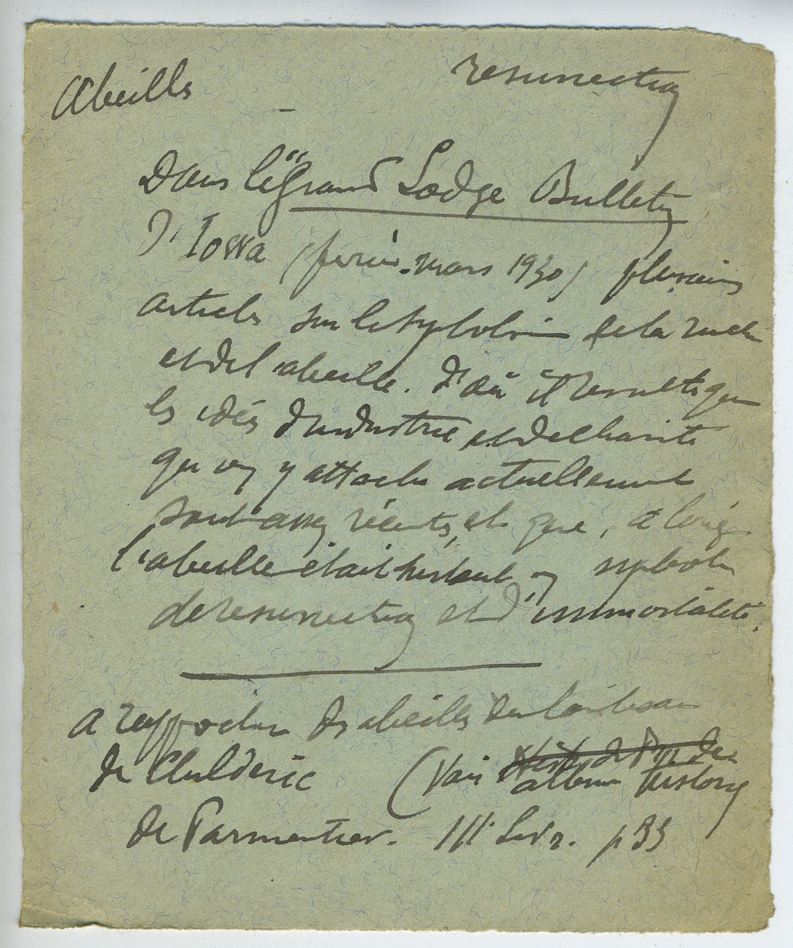 Abeille resurrection
Dans le "Grand Lodge Bulletin
d'Iowa (février-mars 1930) plusieurs
articles sur le symbolisme de la ruche
et de l'abeille. D'où il résulte que
les idées d'industrie et de charité
qu'on y attache actuellement
sont assez récentes, et que, à l'origine
l'abeille était surtout un symbole
de resurrection et d'immortalité.
A rapprocher des abeilles du tombeau
de Childéric (Voir album historique
de Parmentier. III livr. p 33